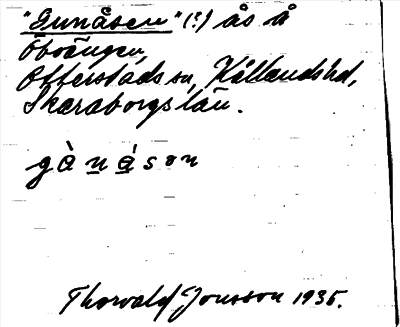 "Gunåsen" (?) ås å
Öboängen,
Otterstads sn, Kållands hd,
Skaraborgs län.
gànáson
Thorvald Jonsson 1935.